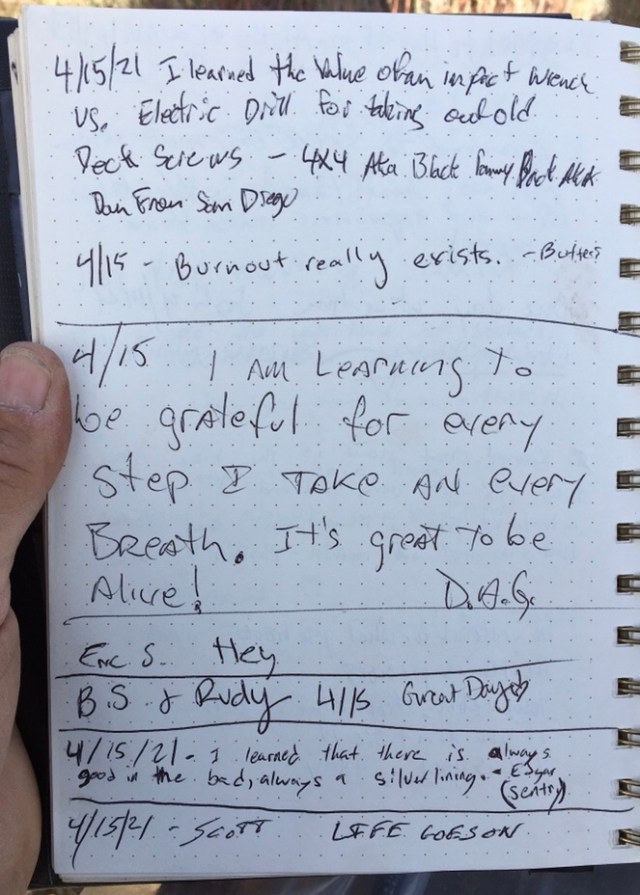 4/15/21 I learned the Value of an impact wrench
vs. Electric Drill for taking out old
Deck Screws - 4x4 Aka Black AKA
Dan From San Diego
4/15 - Burnout really exists. - Butters
4/15 I AM LeArning To
be grAteful for every
Step I TAKE AN every
BreAth. It's greAT To be
Alive! D.A.G.
Eric S. Hey
B.S. & Rudy 4/15 Great Day
4/15/21 - I learned that there is always
good in the bad, always a silver lining. - Edgar
(sentry)
4/15/21 - SCOTT LIFE GOES ON